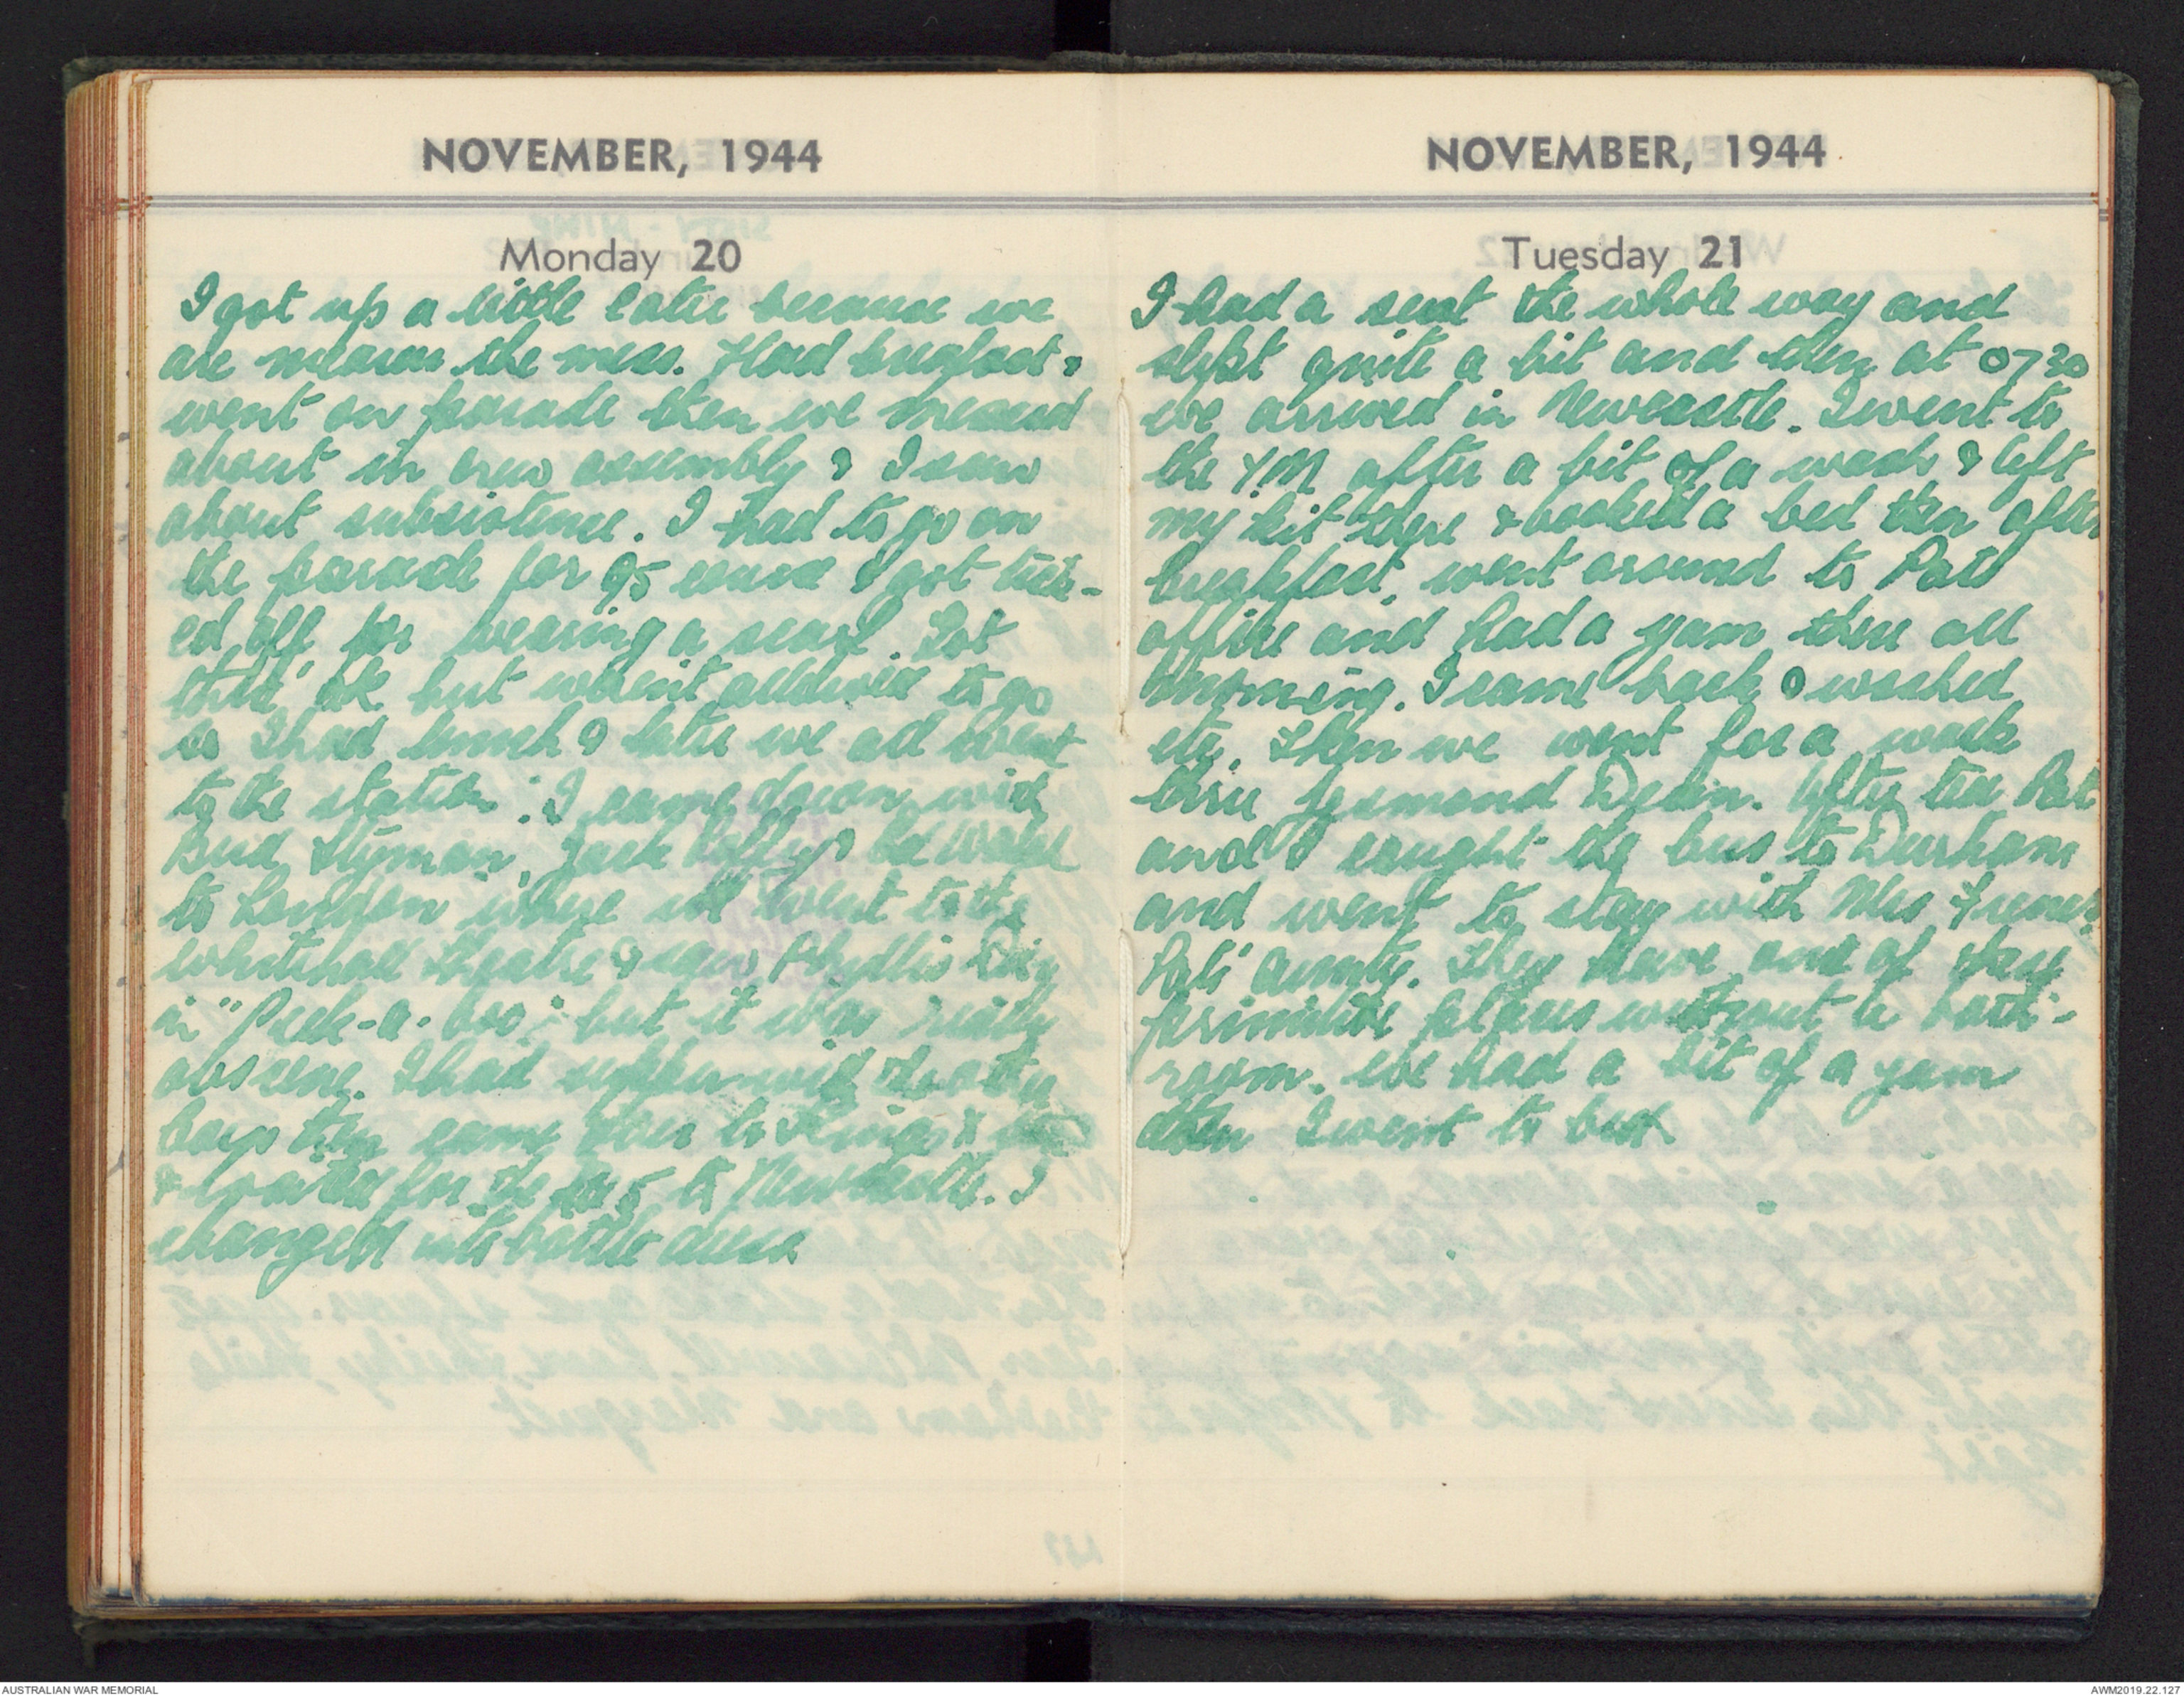 NOVEMBER, 1944
Monday 20
I got up a little later because we
are nearer the mess. Had breakfast &
went on parade then we messed
about in crew assembly & I saw
about subsistence. I had to go on
the parade for 95 course & got tick-
ed off for wearing a scarf. Got
thru' ok but weren't allowed to go
so I had lunch & later we all went
to the station. I came down with
Bud Styman, Jack &
to London where we went to the
Whitehall theatre & saw Phyllis Dixy
in "Peek-a-boo" but it was really
obscene. I had supper with the other
boys then came over to Kings X
& waited for the to Newcastle. I
changed into battle dress
NOVEMBER, 1944
Tuesday 21
I had a seat the whole way and
slept quite a bit and then at 0730
we arrived in Newcastle. I went to
the YM after a bit of a wash & left
my kit there & booked a bed then after
breakfast, went around to Pats
office and had a yarn there all
morning. I came back & washed
etc. Then we went for a walk
thru Jesmond Dean. After tea Pat
and I caught the bus to Durham
and went to stay with Mrs
Pats' aunty. They have one of these
primitive places without a bath-
room. We had a bit of a yarn
then I went to bed.
AUSTRALIAN WAR MEMORIAL
AWM2019.22.127